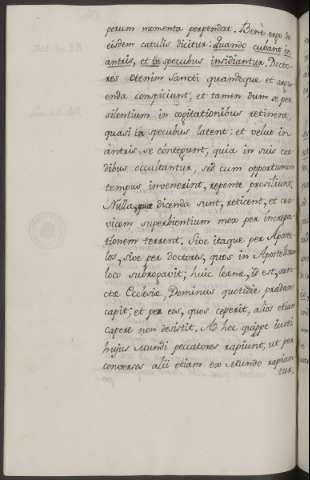 perum momenta perpendat. Bene ergo de
eisdem catulis dicitur: Quando cubant in
antris, et in specubus insidiantur. Docto-
res etenim sancti quandoque et arguenda
conspiciunt, et tamen dum se per
silentium in cogitationibus retinent,
quasi in specubus latent: et velut in
antris se contegunt, quia in suis cor-
dibus occultantur, sed cum opportunum
tempus invenerint, repente prosiliunt.
Nulla, quæ dicenda sunt, reticent, et cer-
vicem superbientium mox per increpa-
tionem terrent. Sive itaque per Aposto-
los, sive per doctores, quos in Apostolorum
loco subrogavit; huic leænæ, id est, san-
ctæ Ecclesiæ, Dominus quotidie prædam
capit; et per eos, quos ceperit, alios etiam
capere non desistit. Ad hoc quippe justi
hujus Mundi peccatores rapiunt, ut per
conversos alii etiam ex Mundo rapian-
tur.